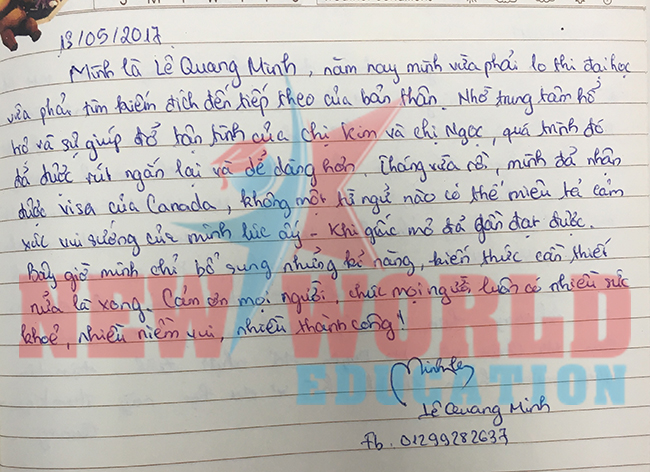 13/05/2017
Mình là Lê Quang Minh, năm nay mình vừa phải lo thi đại học
vừa phải tìm kiếm đích đến tiếp theo của bản thân. Nhờ trung tâm hổ
trợ và sự giúp đở tận tình của chị Kim và chị Ngọc, quá trình đó
đã được rút ngắn lại và dể dàng hơn. Tháng vừa rồi, mình đả nhân
được visa của Canada, không một từ ngử nào có thể miêu tả cảm
xúc vui sướng của mình lúc ấy - Khi giấc mơ đả gần đạt được.
Bây giờ mình chỉ bổ sung những kỉ năng, kiến thức cần thiết
nửa là xong. Cám ơn mọi người, chúc mọi người luôn có nhiều sức
khoẻ, nhiều niềm vui, nhiều thành công!
NEW WORLD
EDUCATION
Lê Quang Minh
Fb: 01299282637